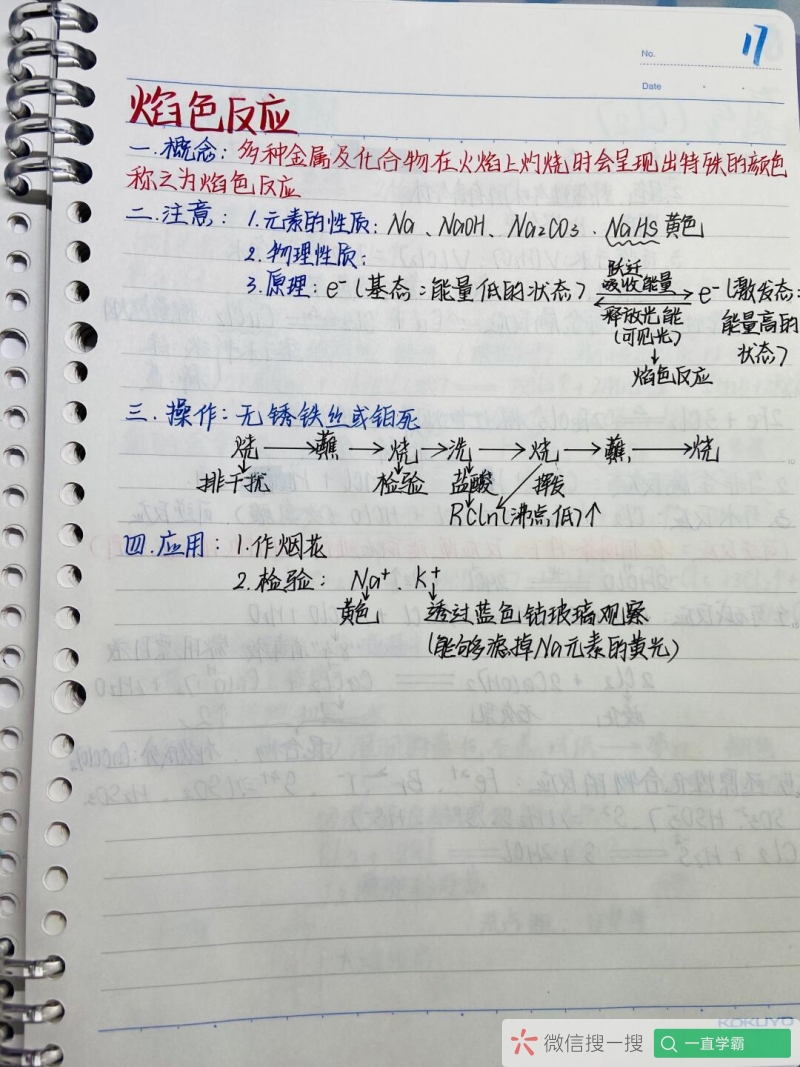 No. 17
Date
焰色反应
一.概念:多种金属及化合物在火焰上灼烧时会呈现出特殊的颜色
称之为焰色反应
二.注意:1.元素的性质:Na、NaOH、Na2CO3、NaHS黄色
2.物理性质:
3.原理:e⁻(基态:能量低的状态) 跃迁 吸收能量 释放光能 (可见光) e⁻(激发态:能量高的状态)
↓
焰色反应
三.操作:无锈铁丝或铂死
烧→蘸→烧→洗→烧→蘸→烧
排干扰 检验 盐酸 挥发
RCln(沸点低)↑
四.应用:1.作烟花
2.检验:Na⁺、K⁺
黄色 透过蓝色钴玻璃观察
(能够滤掉Na元素的黄光)
KOKUYO
微信搜一搜 一直学霸